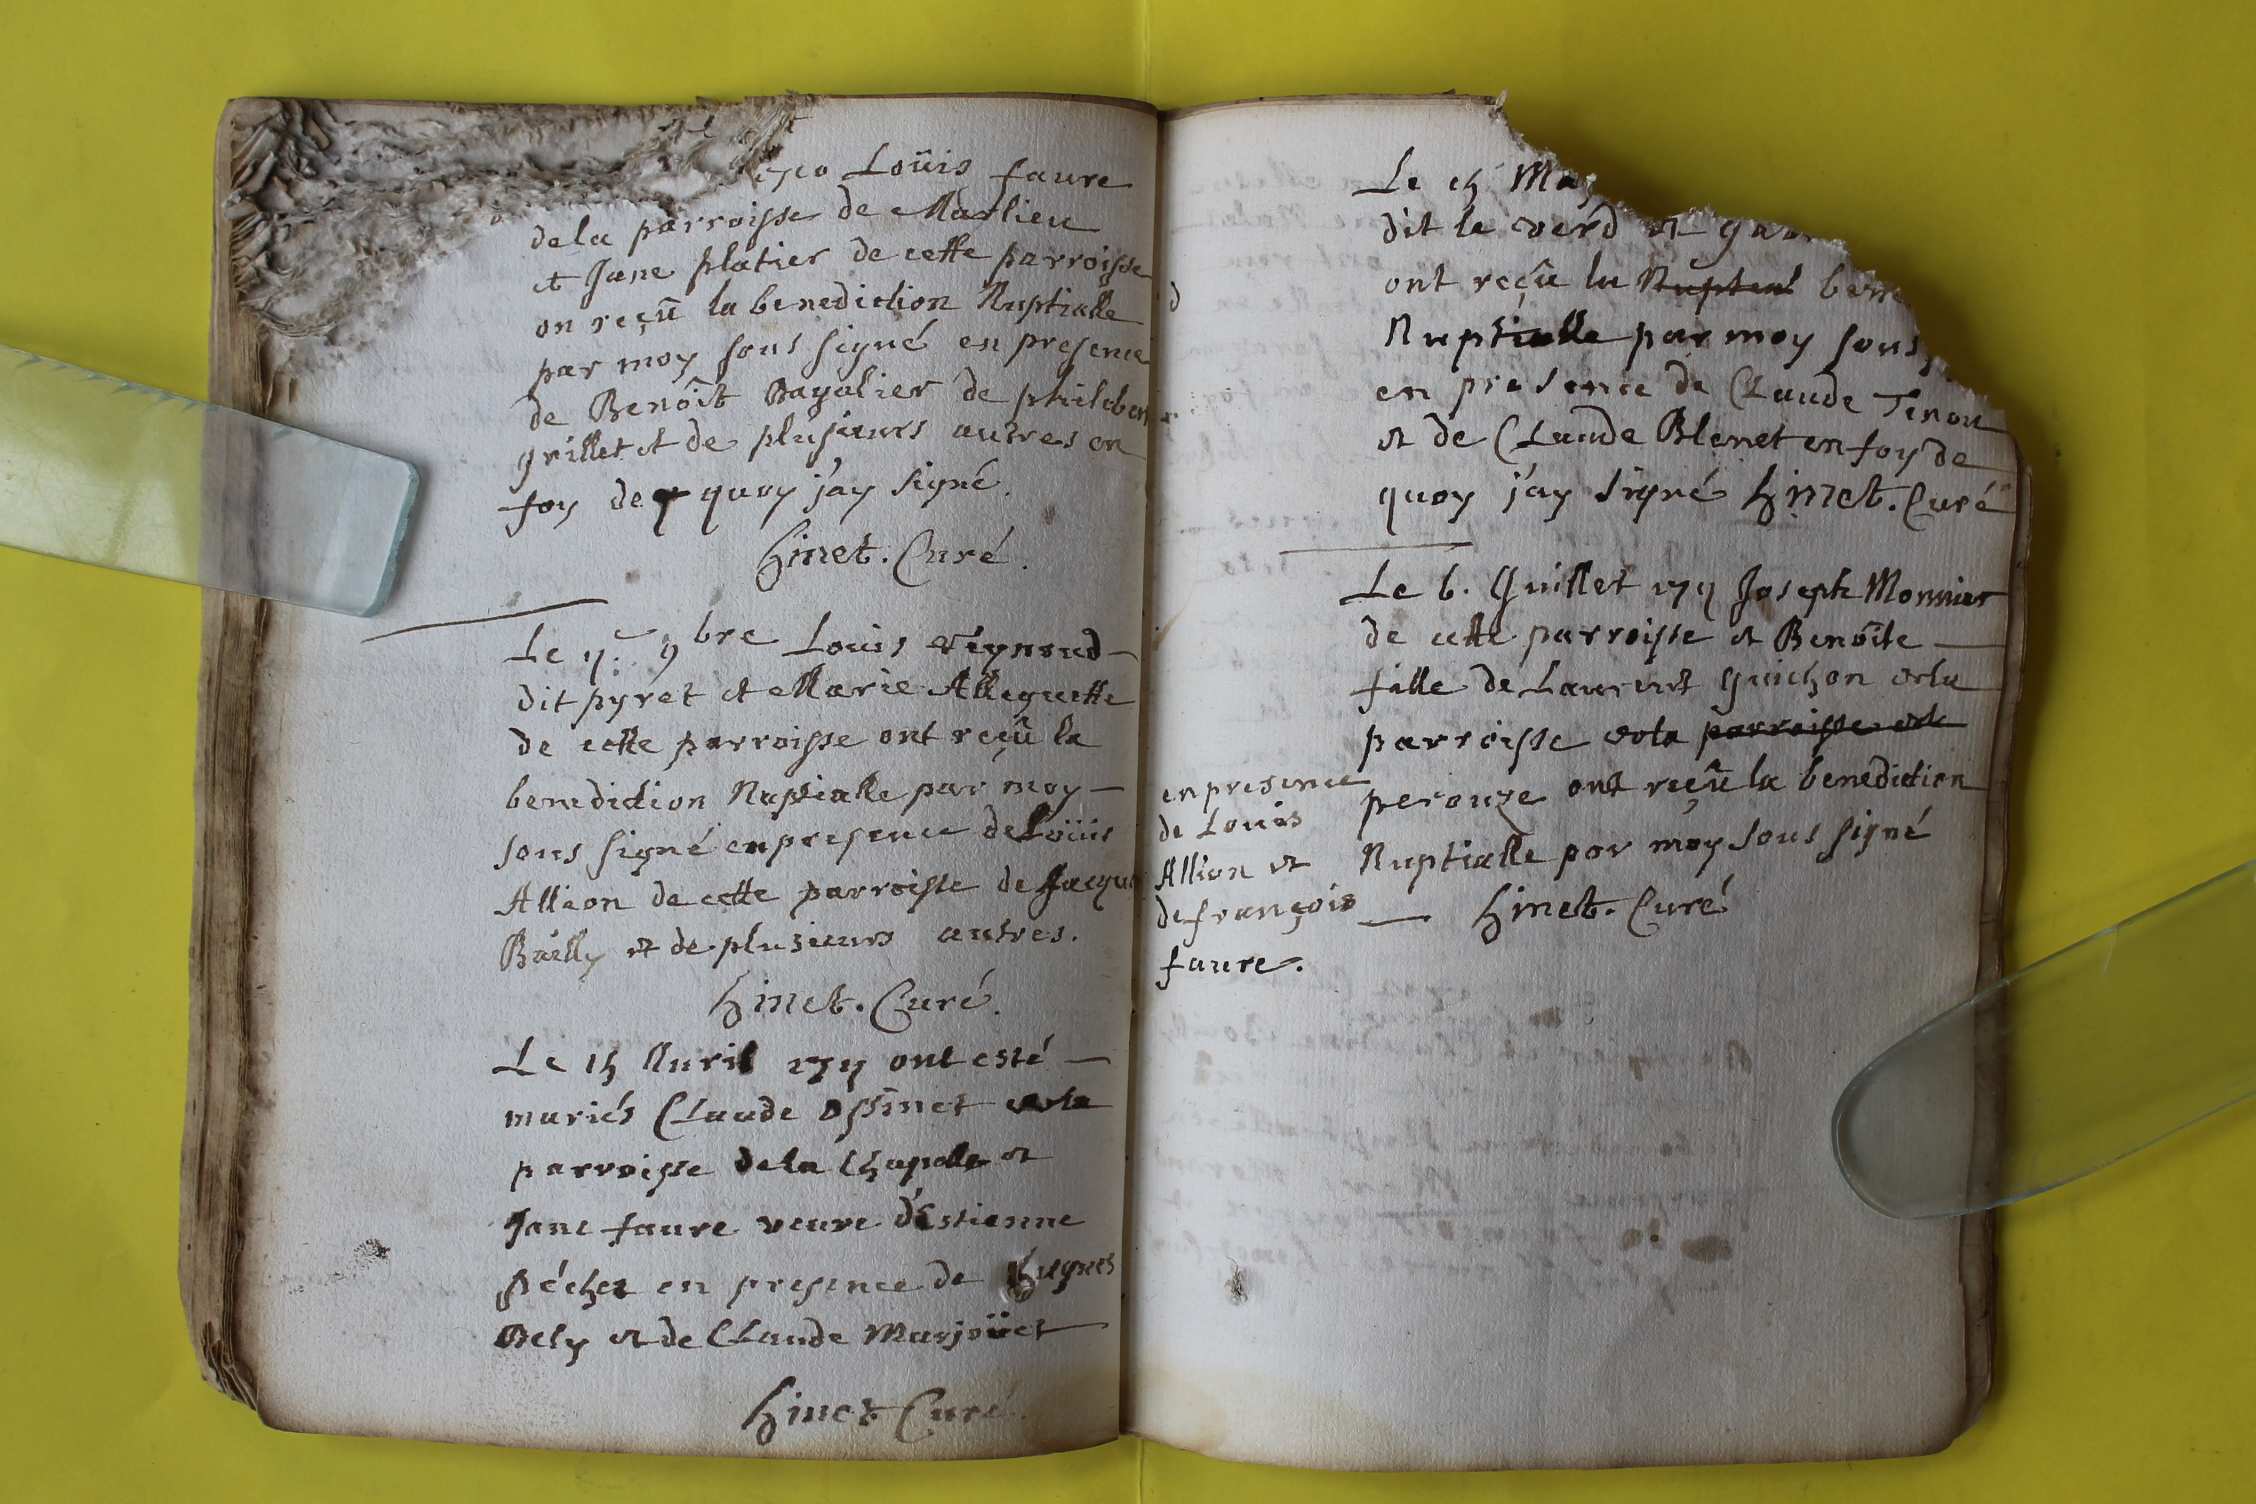 Loüis faure
de la parroisse de Marlieu
et Jane platier de cette parroisse
on reçû la benediction Nuptialle
par moy sous signé en presence
de Benoît Bayalier de philiber
grillet et de plusieurs autres en
foy de quoy j'ay signé.
hinet. Curé.
Le 9bre Louis veynoud
dit pyret et Marie Alleguette
de cette parroisse ont reçû la
benediction Nuptialle par moy
sous signé en presence de Loüis
Allion de cette parroisse de Jacque
Bailly et de plusieurs autres.
hinet. Curé.
Le 15 Auril 1711 ont esté
mariés Claude Ossinet de la
parroisse de la Chapelle et
Jane faure veuve d'Estienne
péchet en presence de Hugues
Bely et de Claude Marjoüet
hinet Curé.
Le 15 May
dit le verd et
ont reçû la Nuptial bene
Nuptialle par moy sous
en presence de Claude Tenou
et de Claude Blenet en foy de
quoy j'ay signé hinet. Curé
Le 6. Juillet 1711 Joseph Monnier
de cette parroisse et Benoîte
fille de Laurent Guichon de la
parroisse de la parroisse de la
perouze ont reçû la benediction
Nuptialle par moy sous signé
hinet. Curé
en presence
de Louis
Allion et
de françois
faure.